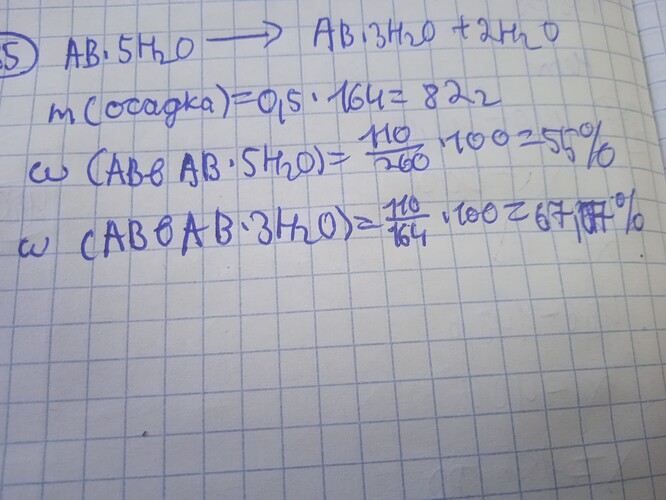 5) AB·5H₂O ⟶ AB·3H₂O + 2H₂O
m(осадка) = 0,5 · 164 = 82 г
ω (AB в AB·5H₂O) = 110/200 · 100 = 55%
ω (AB в AB·3H₂O) = 110/164 · 100 = 67,07%